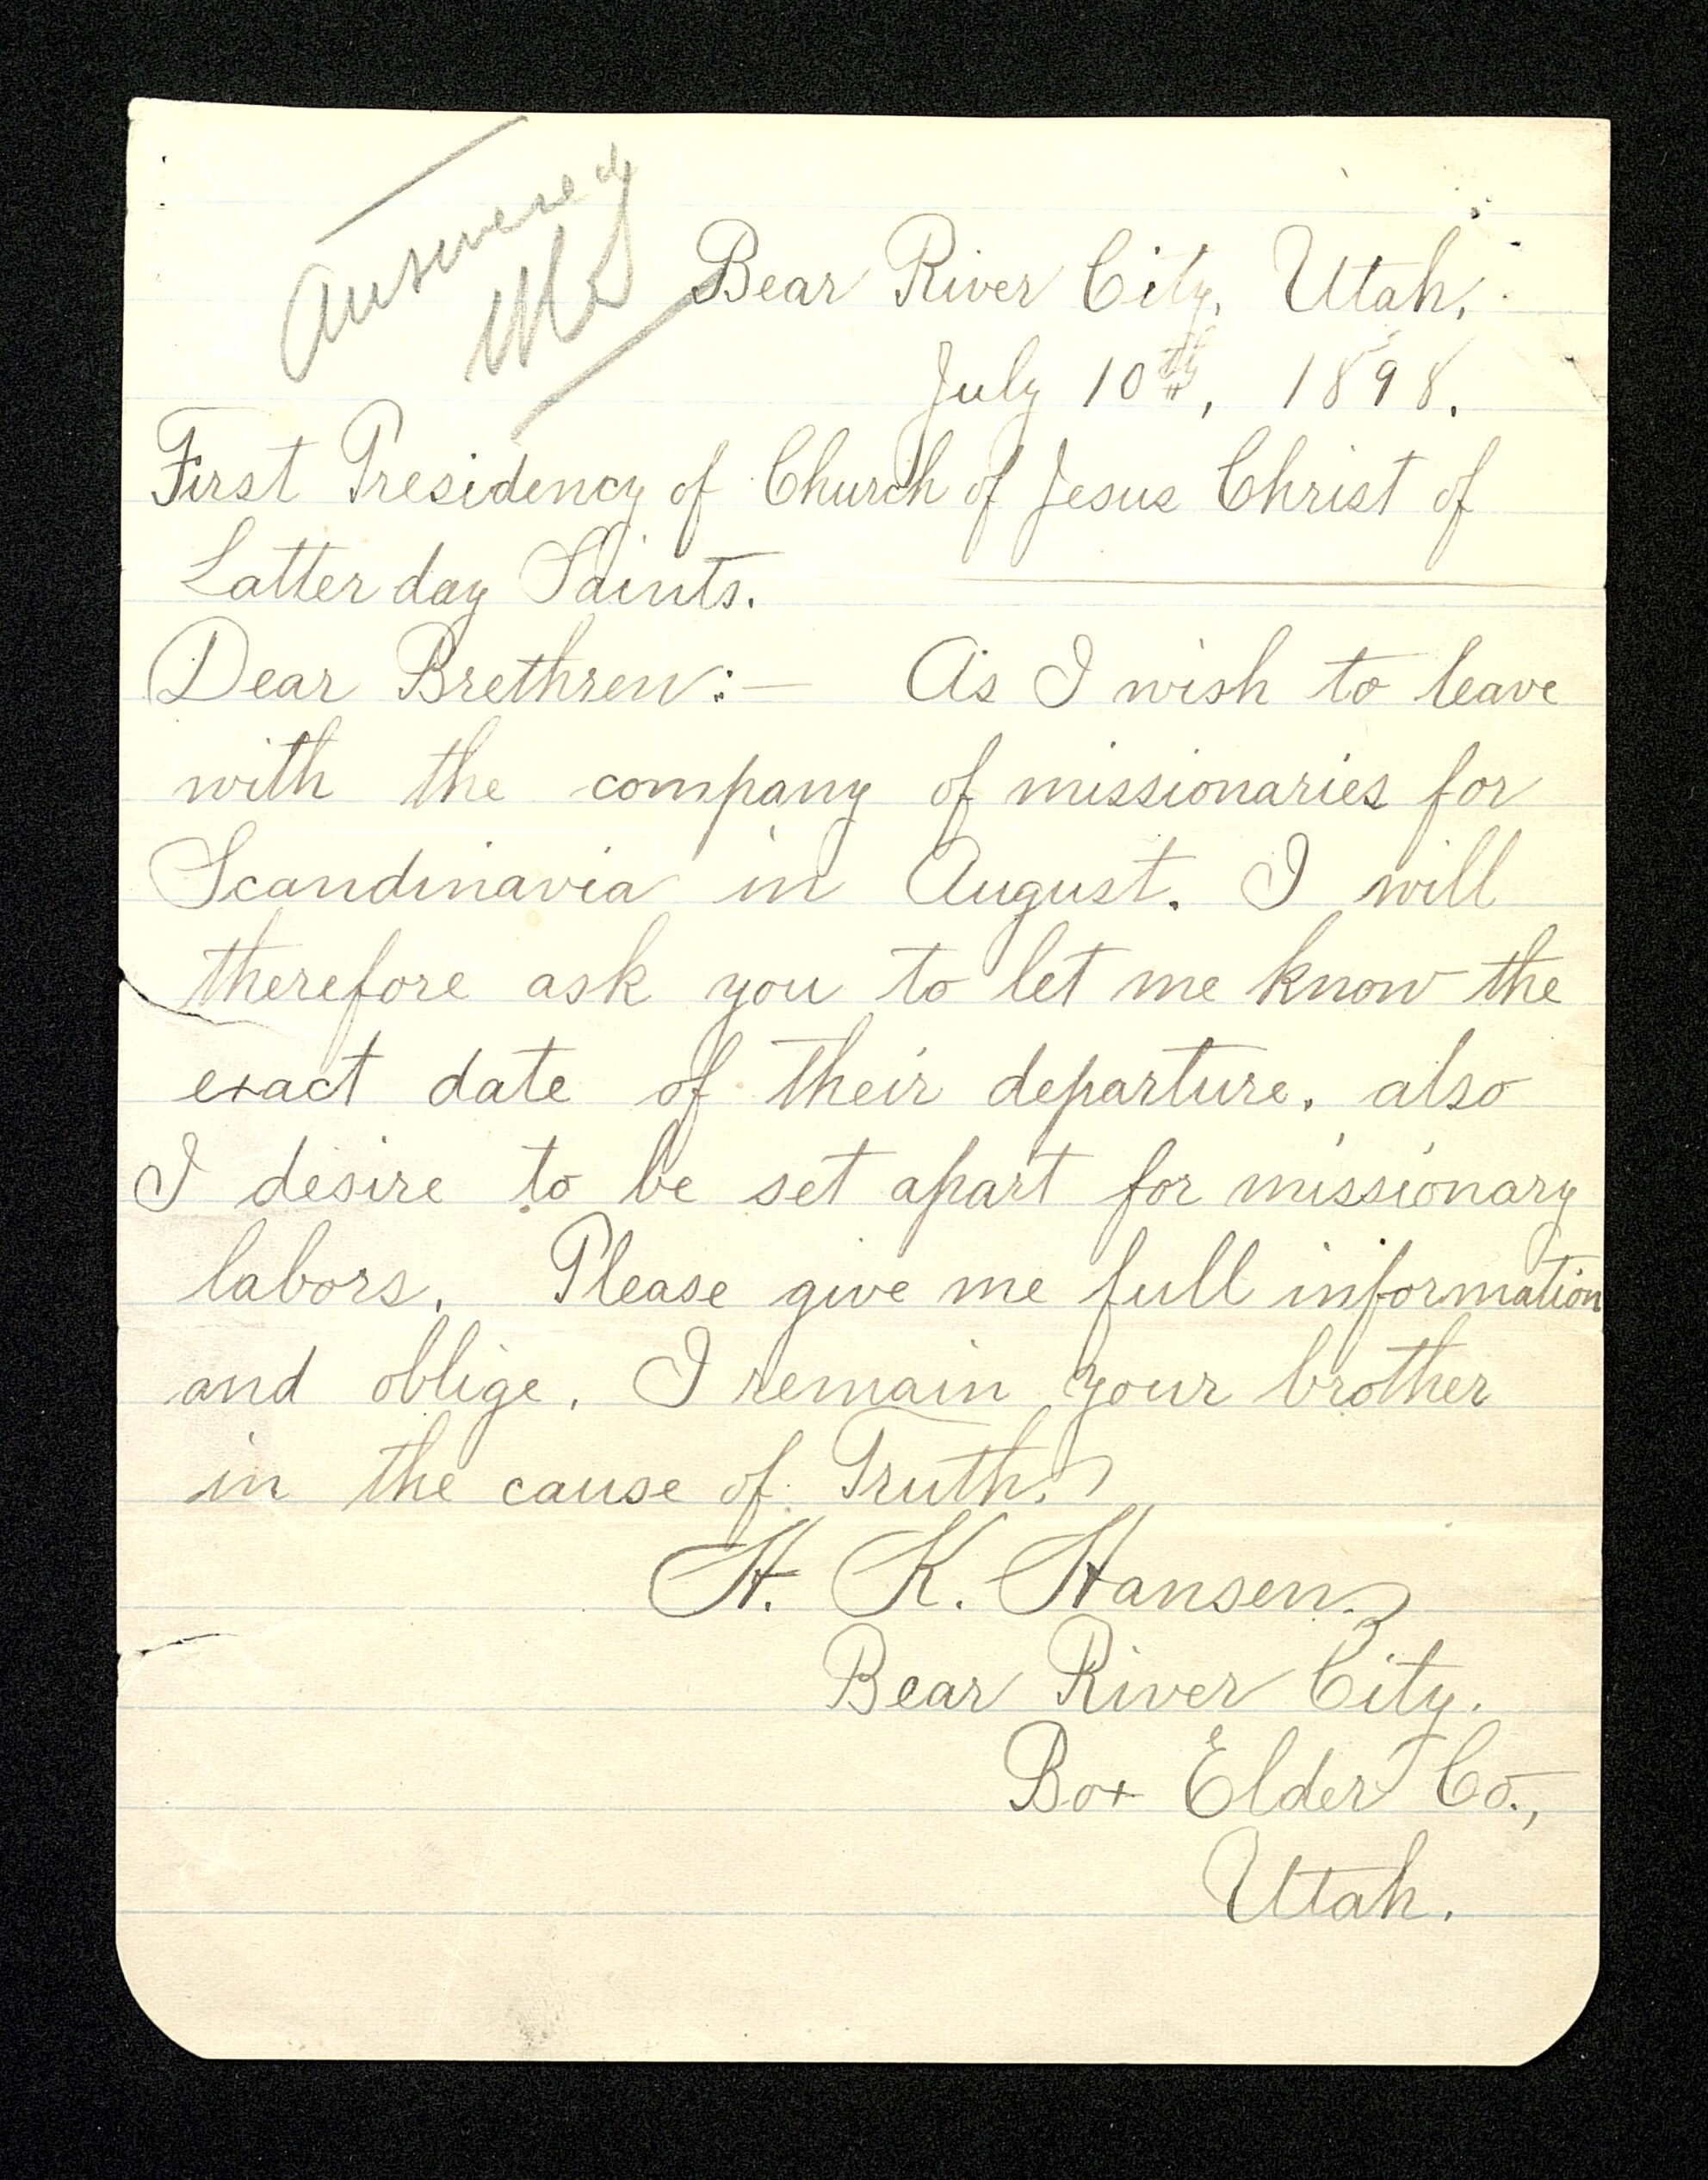 answered
Bear River City, Utah.
July 10th, 1898.
First Presidency of Church of Jesus Christ of
Latter day Saints.
Dear Brethren:— As I wish to leave
with the company of missionaries for
Scandinavia in August. I will
therefore ask you to let me know the
exact date of their departure. also
I desire to be set apart for missionary
labors. Please give me full information
and oblige. I remain your brother
in the cause of Truth.
H. K. Hansen.
Bear River City.
Box Elder Co.,
Utah.